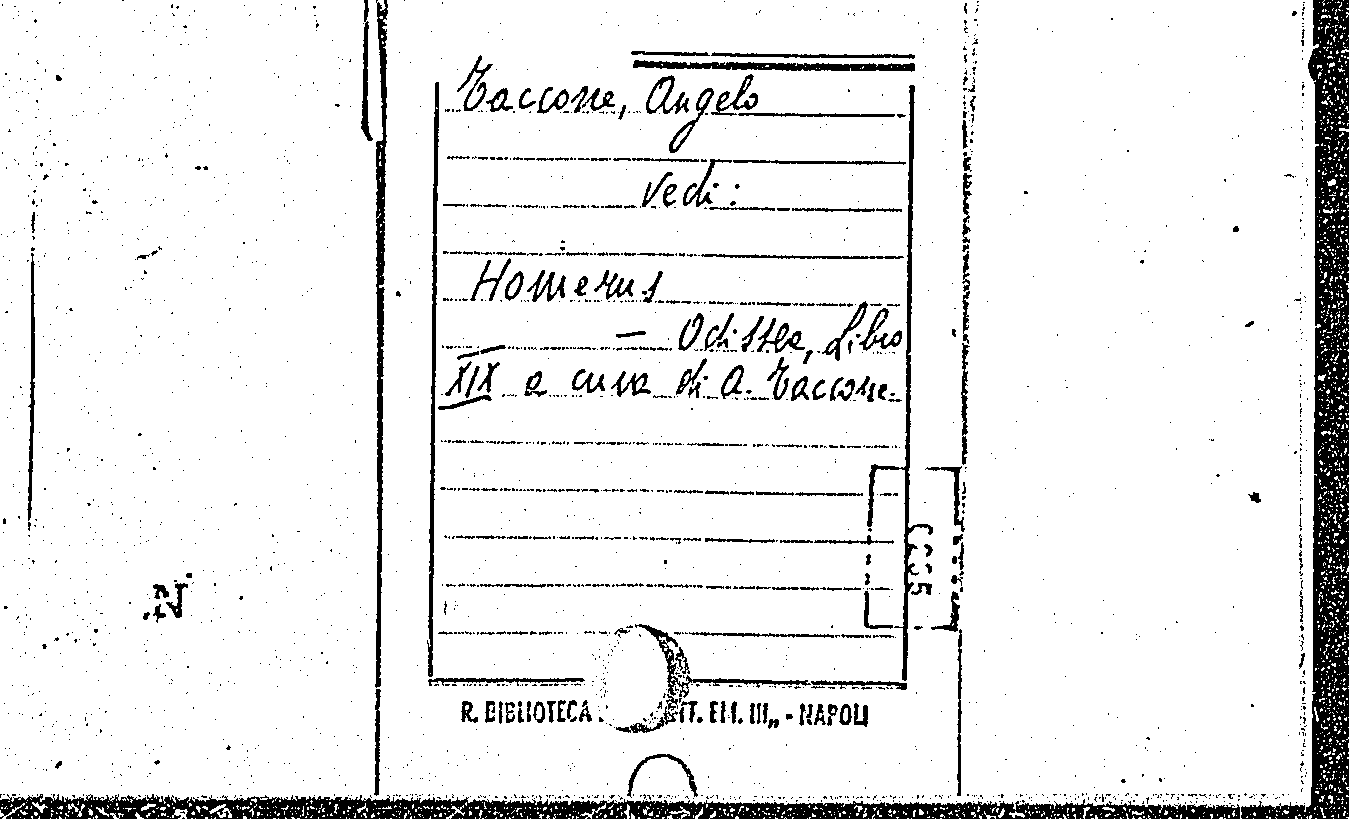 Taccone, Angelo
vedi:
Homerus
— Odissea, Libro
XIX a cura di A. Taccone.
R. BIBLIOTECA IT. EM. III„ - NAPOLI